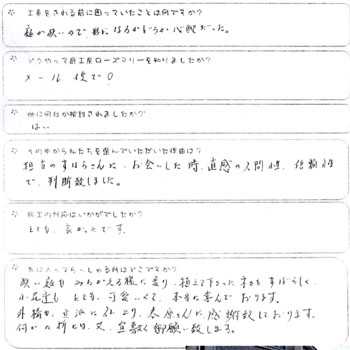 工事をされる前に困っていたことは何ですか?
庭が狭いので 形になるかどうか心配だった。
どうやって庭工房ローズマリーを知りましたか?
メール 便で?
他に何社か検討されましたか?
はい
その中から私たちを選んでいただいた理由は?
担当のすはらさんに、お会いした時、直感の人間性、信頼性
で、判断致しました。
施工の対応はいかがでしたか?
とても、良かったです。
気に入ってらっしゃる所はどこですか?
狭い庭も みちがえる様に変り、植えて下さった 木も すばらしく、
小花達も とても、可愛いくて、本当に喜んで おります。
外構も、立派に仕上り、 さんに感謝致しております。
何かの折には、又、宜敷く御願い致します。